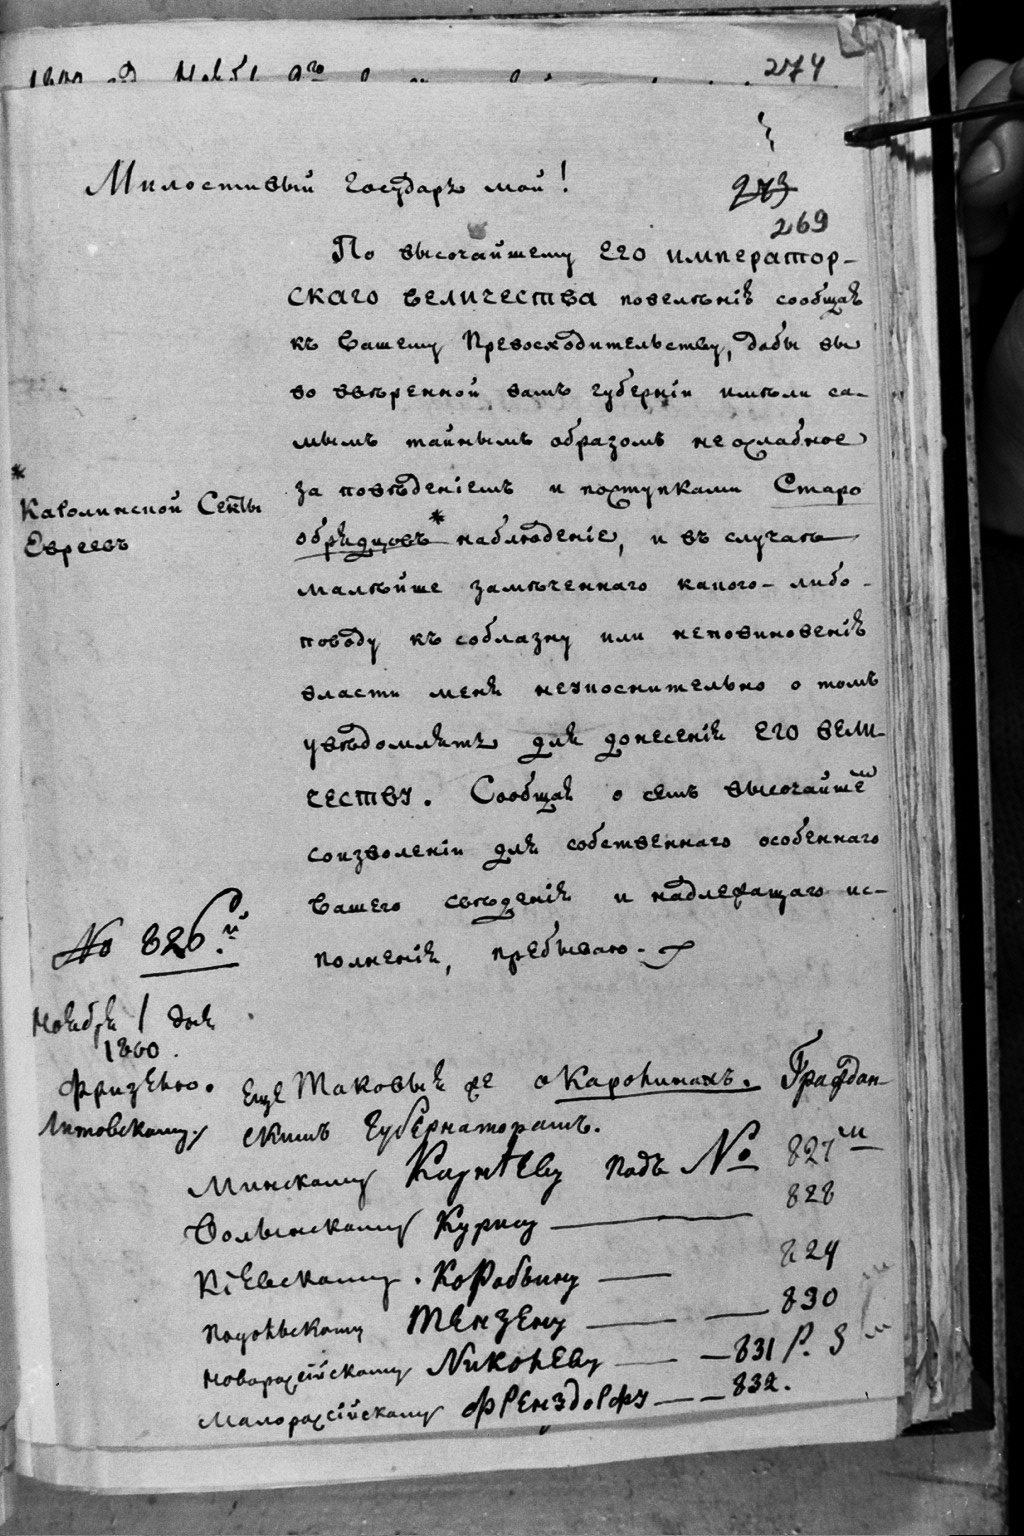 274
Милостивый государь мой!
273
269
По высочайшему ЕГО ИМПЕРАТОР-
СКАГО ВЕЛИЧЕСТВА повелѣнію сообщаю
къ Вашему Превосходительству, дабы вы
во ввѣренной вамъ губерніи имѣли са-
мымъ тайнымъ образомъ неослабное
за поведеніемъ и поступками Старо
обрядцовъ* наблюденіе, и въ случаѣ
малѣйше замѣченнаго какого-либо-
поводу къ соблазну или неповиновенія
власти меня неукоснительно о томъ
увѣдомлять для донесенія ЕГО ВЕЛИ-
ЧЕСТВУ. Сообщая о семъ высочайшемъ
соизволеніи для собственнаго особеннаго
Вашего свѣденія и надлежащаго ис-
полненія, пребываю.
*
Каролинской Секты
Евреевъ
No 826.й
Ноября 1 дня
1800.
Фризелю.
Литовскому.
Еще таковыя же о Каролинахъ. Граждан-
скимъ Губернаторамъ.
Минскому Карнѣеву подъ No 827
Волынскому Курису — 828
Кіевскому. Коробьину — 829
Подольскому Тензену — — 830
Новоросійскому Николеву — — 831
Малоросійскому Френздорфу — — 832.